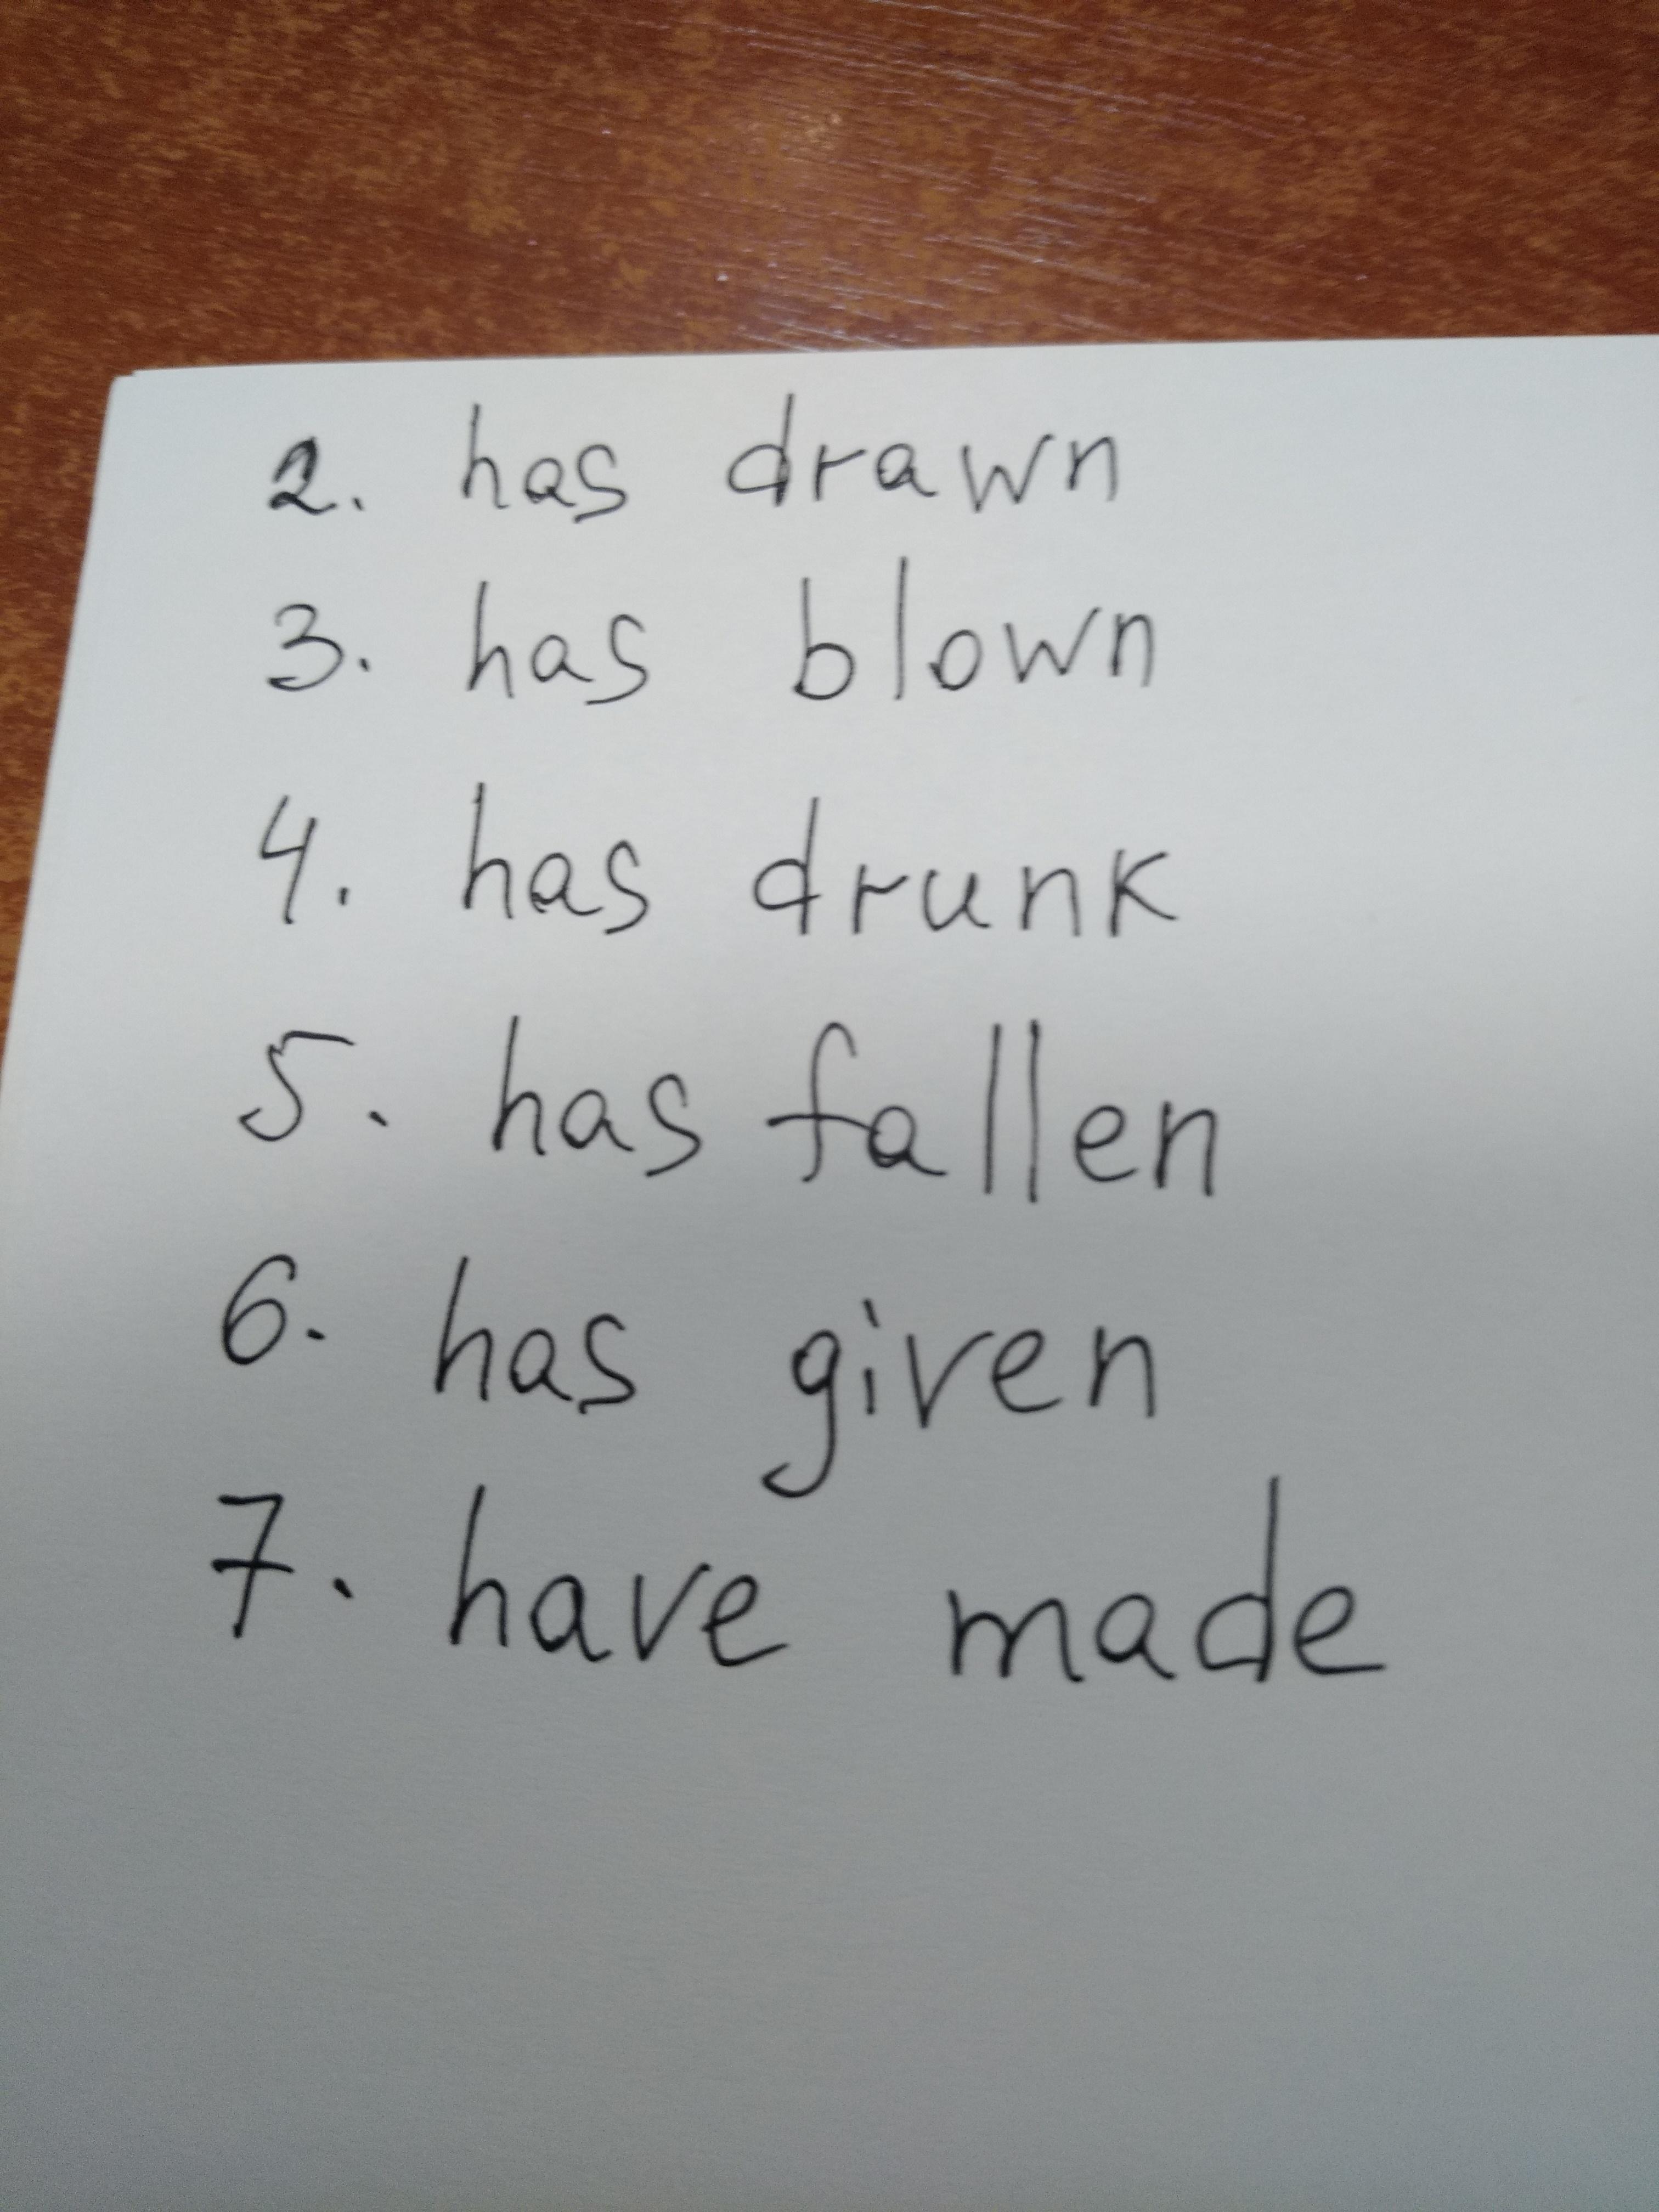 2. has drawn
3. has blown
4. has drunk
5. has fallen
6. has given
7. have made